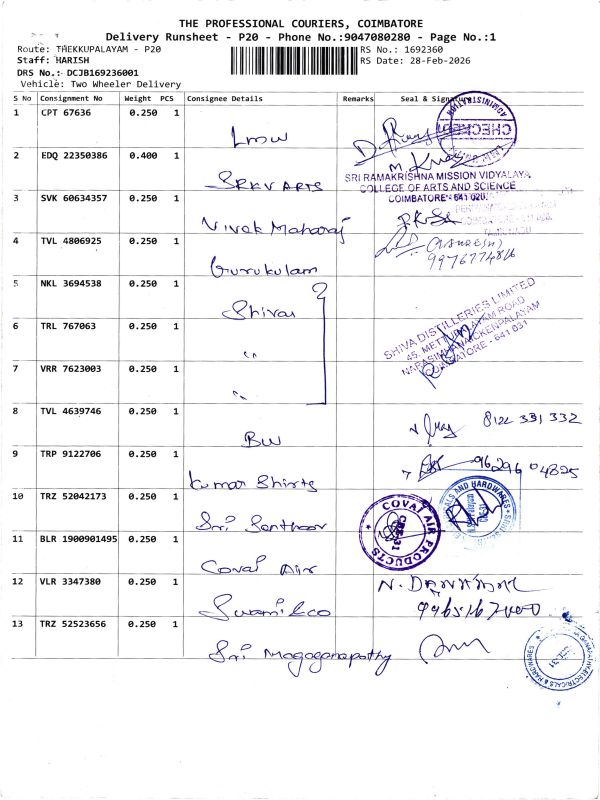 THE PROFESSIONAL COURIERS, COIMBATORE
Delivery Runsheet - P20 - Phone No.:9047080280 - Page No.:1
Route: THEKKUPALAYAM - P20
RS No.: 1692360
Staff: HARISH
RS Date: 28-Feb-2026
DRS No.: DCJB169236001
Vehicle: Two Wheeler Delivery
S No Consignment No Weight PCS Consignee Details Remarks Seal & Signature
1 CPT 67636 0.250 1
LMW
CHECKED
2 EDQ 22350386 0.400 1
SRKV ARTS
SRI RAMAKRISHNA MISSION VIDYALAYA
COLLEGE OF ARTS AND SCIENCE
COIMBATORE - 641 020.
3 SVK 60634357 0.250 1
Vivek Maharaj
4 TVL 4806925 0.250 1
Gurukulam
9976774816
5 NKL 3694538 0.250 1
Shivas
SHIVA DISTILLERIES LIMITED
45, METTUPALAYAM ROAD
NARASIMHANAICKENPALAYAM
COIMBATORE - 641 031
6 TRL 767063 0.250 1
"
7 VRR 7623003 0.250 1
"
8 TVL 4639746 0.250 1
BW
8122 331 332
9 TRP 9122706 0.250 1
Kumar Shirts
96296 04825
10 TRZ 52042173 0.250 1
Sri Senthoor
11 BLR 1900901495 0.250 1
Covai Air
COVAI AIR PRODUCTS
CBE-31
12 VLR 3347380 0.250 1
Swami & co
13 TRZ 52523656 0.250 1
Sri Magaganapathy